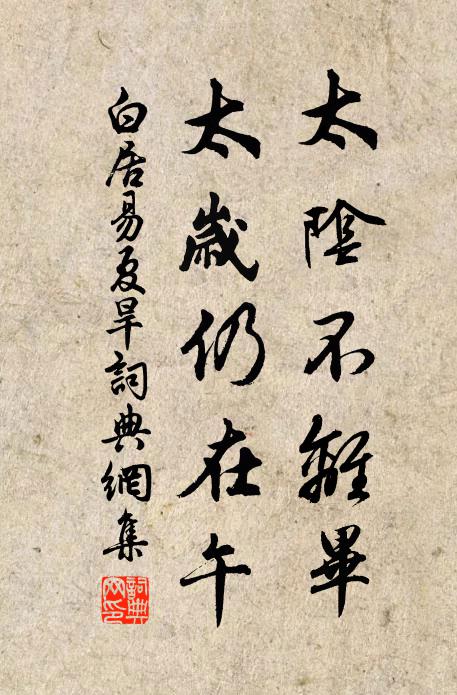 太陰不離畢
太歲仍在午
白居易夏旱詞典網集
詞典網印